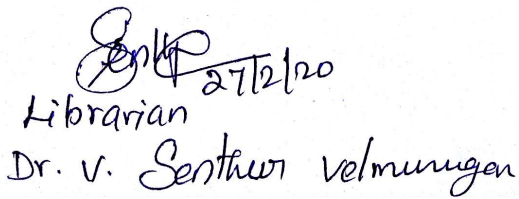 27/2/20
Librarian
Dr. V. Senthur Velmurugan